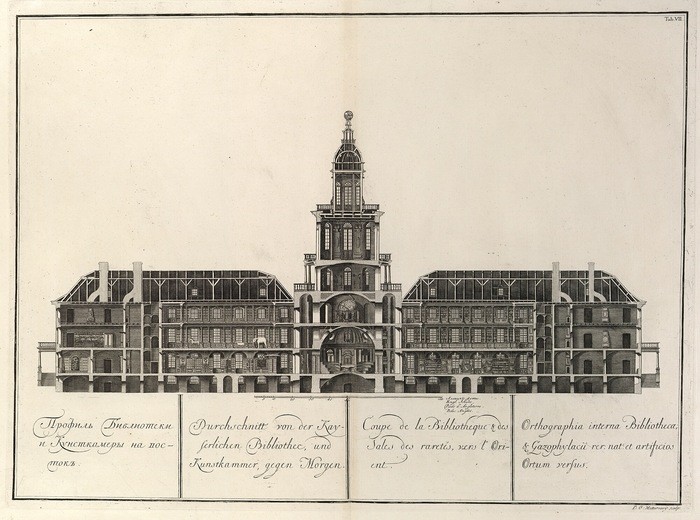 Tab. VII.
Профиль Библиотеки
и Кунсткамеры на вос-
токъ.
Durchschnitt von der Kay-
serlichen Bibliothec, und
Kunstkammer, gegen Morgen.
Coupe de la Bibliotheque & des
Sales des raretés, vers l'Ori-
ent.
Orthographia interna Bibliothecæ,
& Gazophylacii rer. nat: et artificios
Ortum versus.